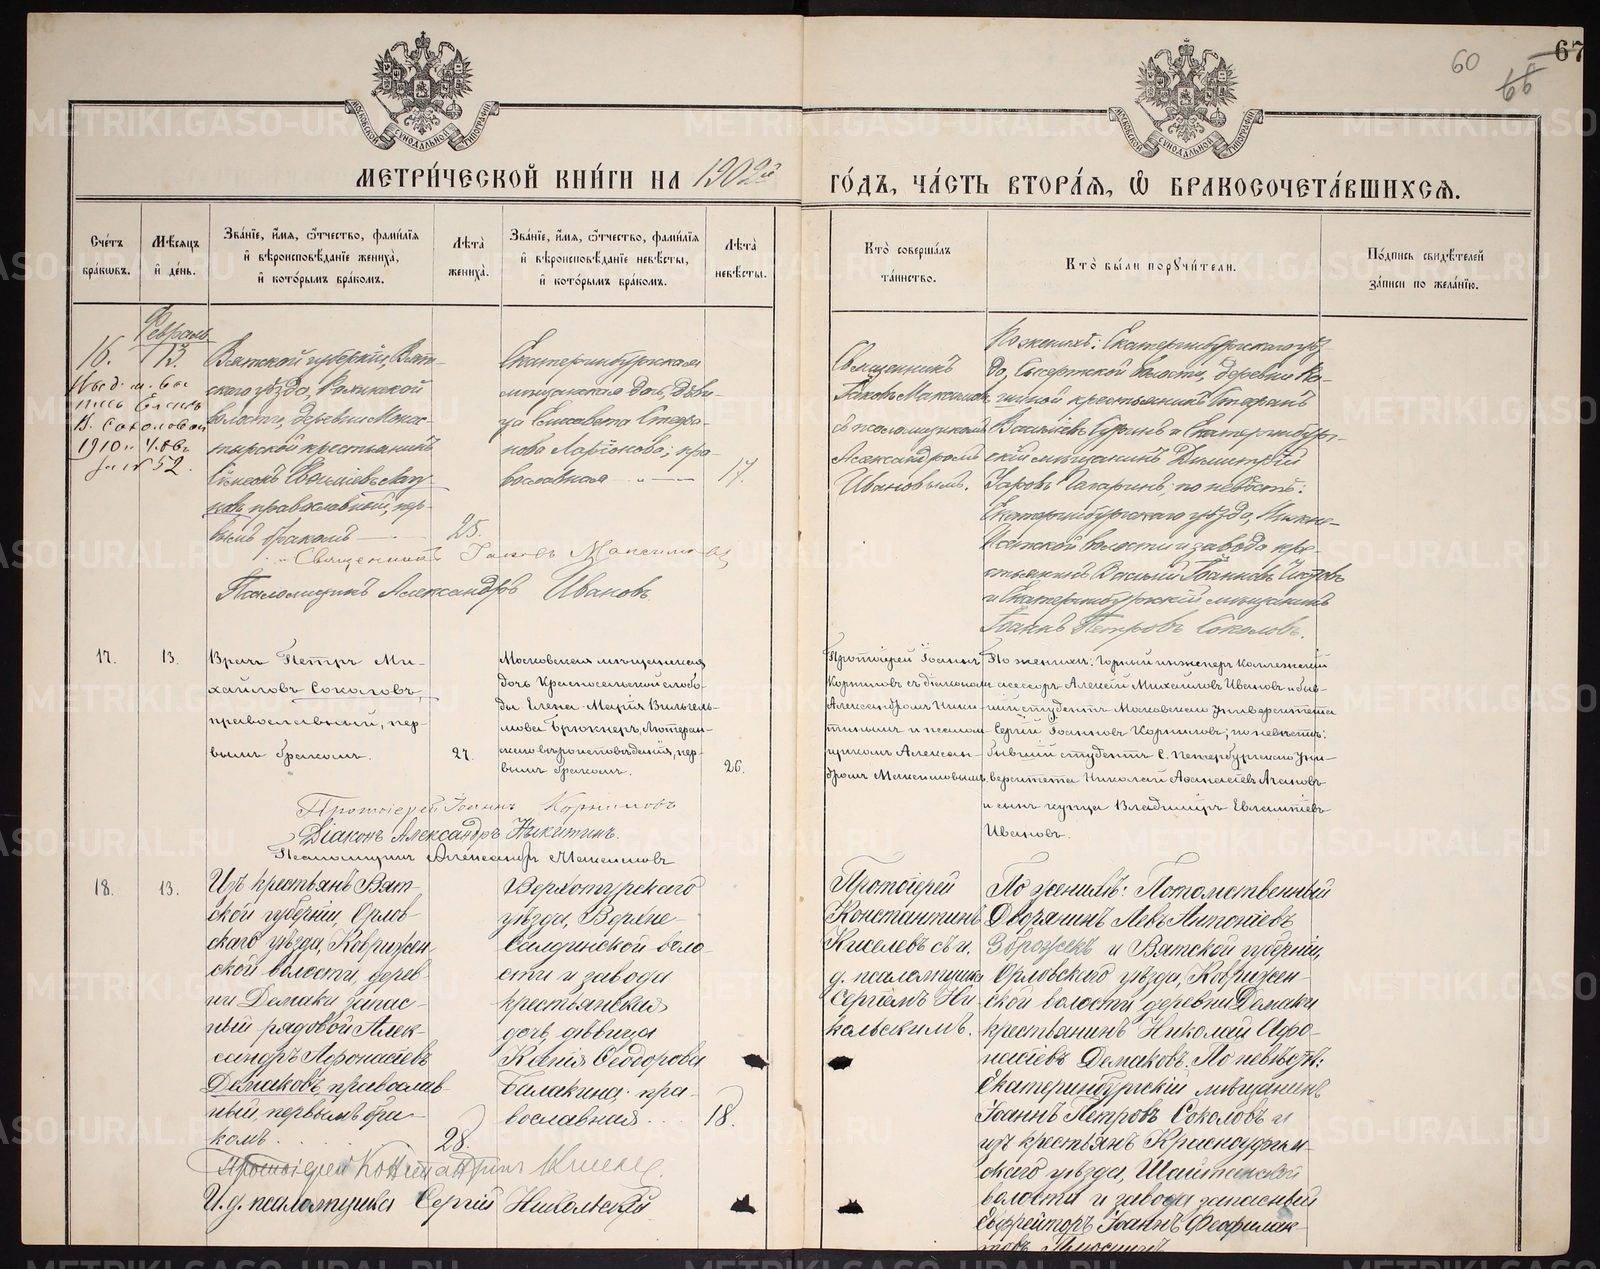 60
66
67
МОСКОВСКОЙ СѴНОДАЛЬНОЙ ТИПОГРАФІИ
МОСКОВСКОЙ СѴНОДАЛЬНОЙ ТИПОГРАФІИ
МЕТРИ́ЧЕСКОЙ КНИ́ГИ НА 1902й ГО́ДЪ, ЧА́СТЬ ВТОРА́Я, Ѽ БРАКОСОЧЕТА́ВШИХСЯ.
Сче́тъ бра́кѡвъ.
Мѣ́сяцъ и҆ де́нь.
Зва́нїе, и҆́мя, ѻ҆́тчество, фами́лїя и҆ вѣроисповѣ́данїе жениха̀, и҆ кото́рымъ бра́комъ.
Лѣта̀ жениха̀.
Зва́нїе, и҆́мя, ѻ҆́тчество, фами́лїя и҆ вѣроисповѣ́данїе невѣ́сты, и҆ кото́рымъ бра́комъ.
Лѣта̀ невѣ́сты.
Кто̀ соверша́лъ та́инство.
Кто̀ бы́ли порꙋчи́тели.
По́дпись свидѣ́телей за́писи по жела́нїю.
Февраль
16.
13.
Выд.
1910
№ 52.
Вятской губерніи, Вят-
скаго уѣзда,
волости, деревни Монас-
тырской крестьянинъ
православный, пер-
вымъ бракомъ
25.
Екатеринбургская
мѣщанская дочь, дѣви-
ца Елисавета Стефа-
нова Ларіонова; пра-
вославная
17.
Священникъ
Іаковъ Максимовъ
съ псаломщикомъ
Александромъ
Ивановымъ.
По женихѣ: Екатеринбургскаго уѣз
да, Сысертской волости, деревни Ко-
крестьянинъ Стефанъ
Васильевъ и Екатеринбург-
скій мѣщанинъ Димитрій
Гагаринъ; по невѣстѣ:
Екатеринбургскаго уѣзда, Нижне-
Исетской волости и завода кре-
стьянинъ Василій Іоанновъ
и Екатеринбургскій мѣщанинъ
Іоаннъ Петровъ Соколовъ.
Священникъ Іаковъ Максимовъ
Псаломщикъ Александръ Ивановъ
17.
13.
Врачъ Петръ Ми-
хайловъ Соколовъ,
православный, пер-
вымъ бракомъ.
27.
Московская мѣщанская
дочь Красносельской слобо-
ды Елена-Марія Вильгель-
мова Брюкнеръ, Лютеран-
скаго вѣроисповѣданія, пер-
вымъ бракомъ.
26.
Протоіерей Іоаннъ
Корниловъ съ діакономъ
Александромъ Ники-
тинымъ и псалом-
щикомъ Алексан-
дромъ Максимовымъ.
По женихѣ: Горный инженеръ Коллежскій
ассесоръ Алексій Михайловъ Ивановъ и быв-
шій студентъ Московскаго Университета
Сергій Іоанновъ Корниловъ; по невѣстѣ:
бывшій студентъ С. Петербургскаго Уни-
верситета Николай Аѳанасіевъ
и сынъ купца Владиміръ Евлампіевъ
Ивановъ.
Протоіерей Іоаннъ Корниловъ
Діаконъ Александръ Никитинъ.
Псаломщикъ Александръ Максимовъ
18.
13.
Изъ крестьянъ Вят-
ской губерніи, Орлов-
скаго уѣзда, Кобрижен-
ской волости дерев
ни Домаки запас-
ный рядовой Алек-
сандръ Афонасіевъ
Домаковъ, православ
ный, первымъ бра-
комъ
28.
Верхотурскаго
уѣзда, Верхне-
Салдинской воло
сти и завода
крестьянская
дочь, дѣвица
Ксенія Ѳеодорова
Балакина пра-
вославная
18.
Протоіерей
Константинъ
Киселевъ съ и.
д. псаломщика
Сергіемъ Ни
кольскимъ.
По женихѣ: Потомственный
Дворянинъ Левъ Антоніевъ
Зброжекъ и Вятской губерніи,
Орловскаго уѣзда, Кобрижен-
ской волости деревни Домаки
крестьянинъ Николай Афо-
насіевъ Домаковъ. По невѣстѣ:
Екатеринбургскій мѣщанинъ
Іоаннъ Петровъ Соколовъ и
изъ крестьянъ Красноуфим-
скаго уѣзда, Шайтанской
волости и завода запасный
Ефрейторъ Іоаннъ Феофилак-
товъ
Протоіерей Константинъ Киселевъ
И. д. псаломщика Сергій Никольскій
METRIKI.GASO-URAL.RU